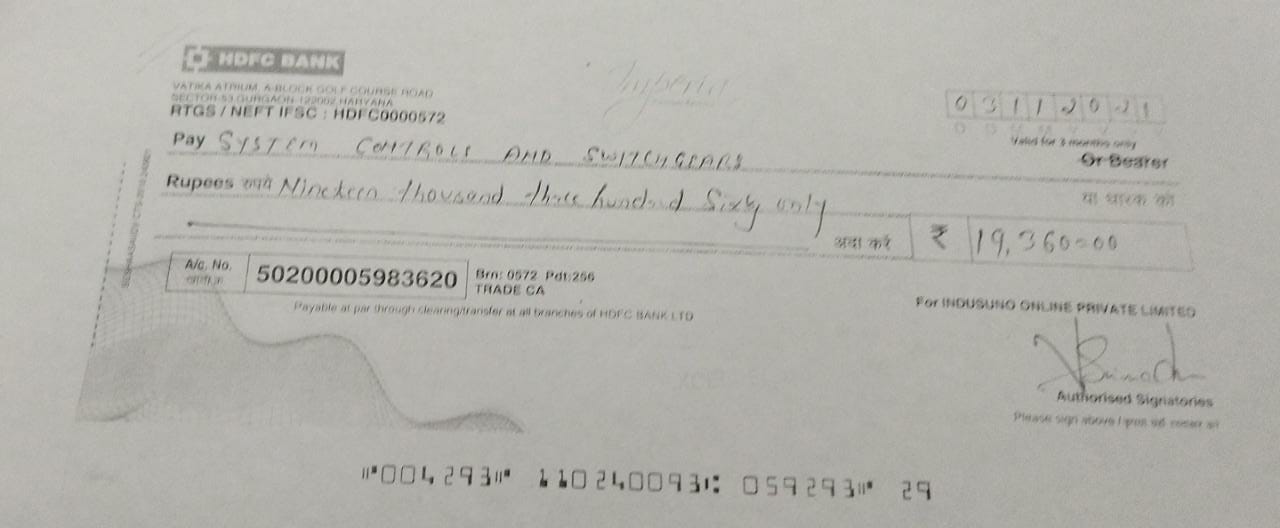 HDFC BANK
VATIKA ATRIUM, A-BLOCK GOLF COURSE ROAD
SECTOR-53 GURGAON-122002 HARYANA
RTGS / NEFT IFSC : HDFC0000572
Imperia
03112021
D D M M Y Y Y Y
Valid for 3 months only
Pay SYSTEM CONTROLS AND SWITCHGEARS
Or Bearer
या धारक को
Rupees रुपये Nineteen thousand three hundred Sixty only
अदा करें
₹ 19,360=00
A/c. No.
50200005983620
Brn: 0572 Pdt:256
TRADE CA
Payable at par through clearing/transfer at all branches of HDFC BANK LTD
For INDUSUNO ONLINE PRIVATE LIMITED
Authorised Signatories
Please sign above /
⑈004293⑈ 110240093⑆ 059293⑈ 29